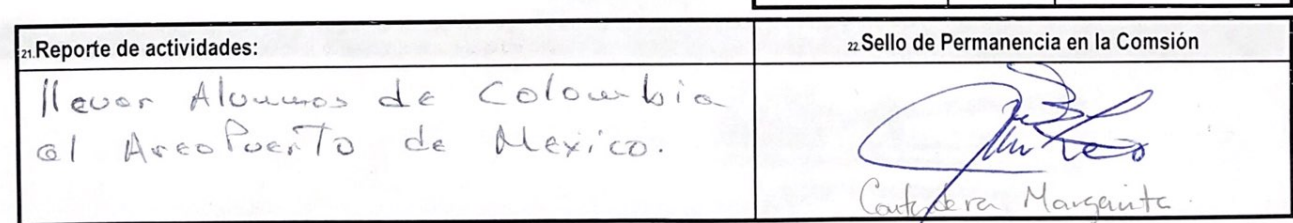 21.Reporte de actividades:
22.Sello de Permanencia en la Comsión
llevar Alumnos de Colombia
al AreoPuerTo de Mexico.
Margarita